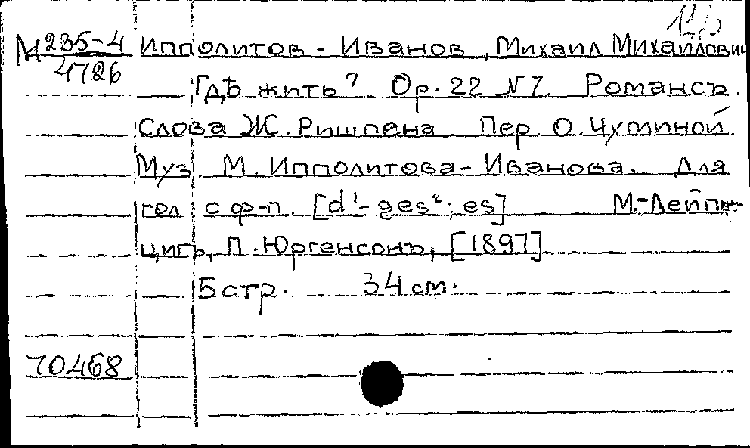 М 235-4 Ипполитов - Иванов, Михаил Михайлович
4726
Гдѣ жить? Op. 22 N 7. Романсъ.
Слова Ж. Ришпена Пер. О. Чуминой
Муз М. Ипполитова-Иванова. Для
гол с ф-п. [d¹-ges²; es] М.-Лейп-
цигъ, П. Юргенсонъ, [1897]
5 стр. 34 см.
70468